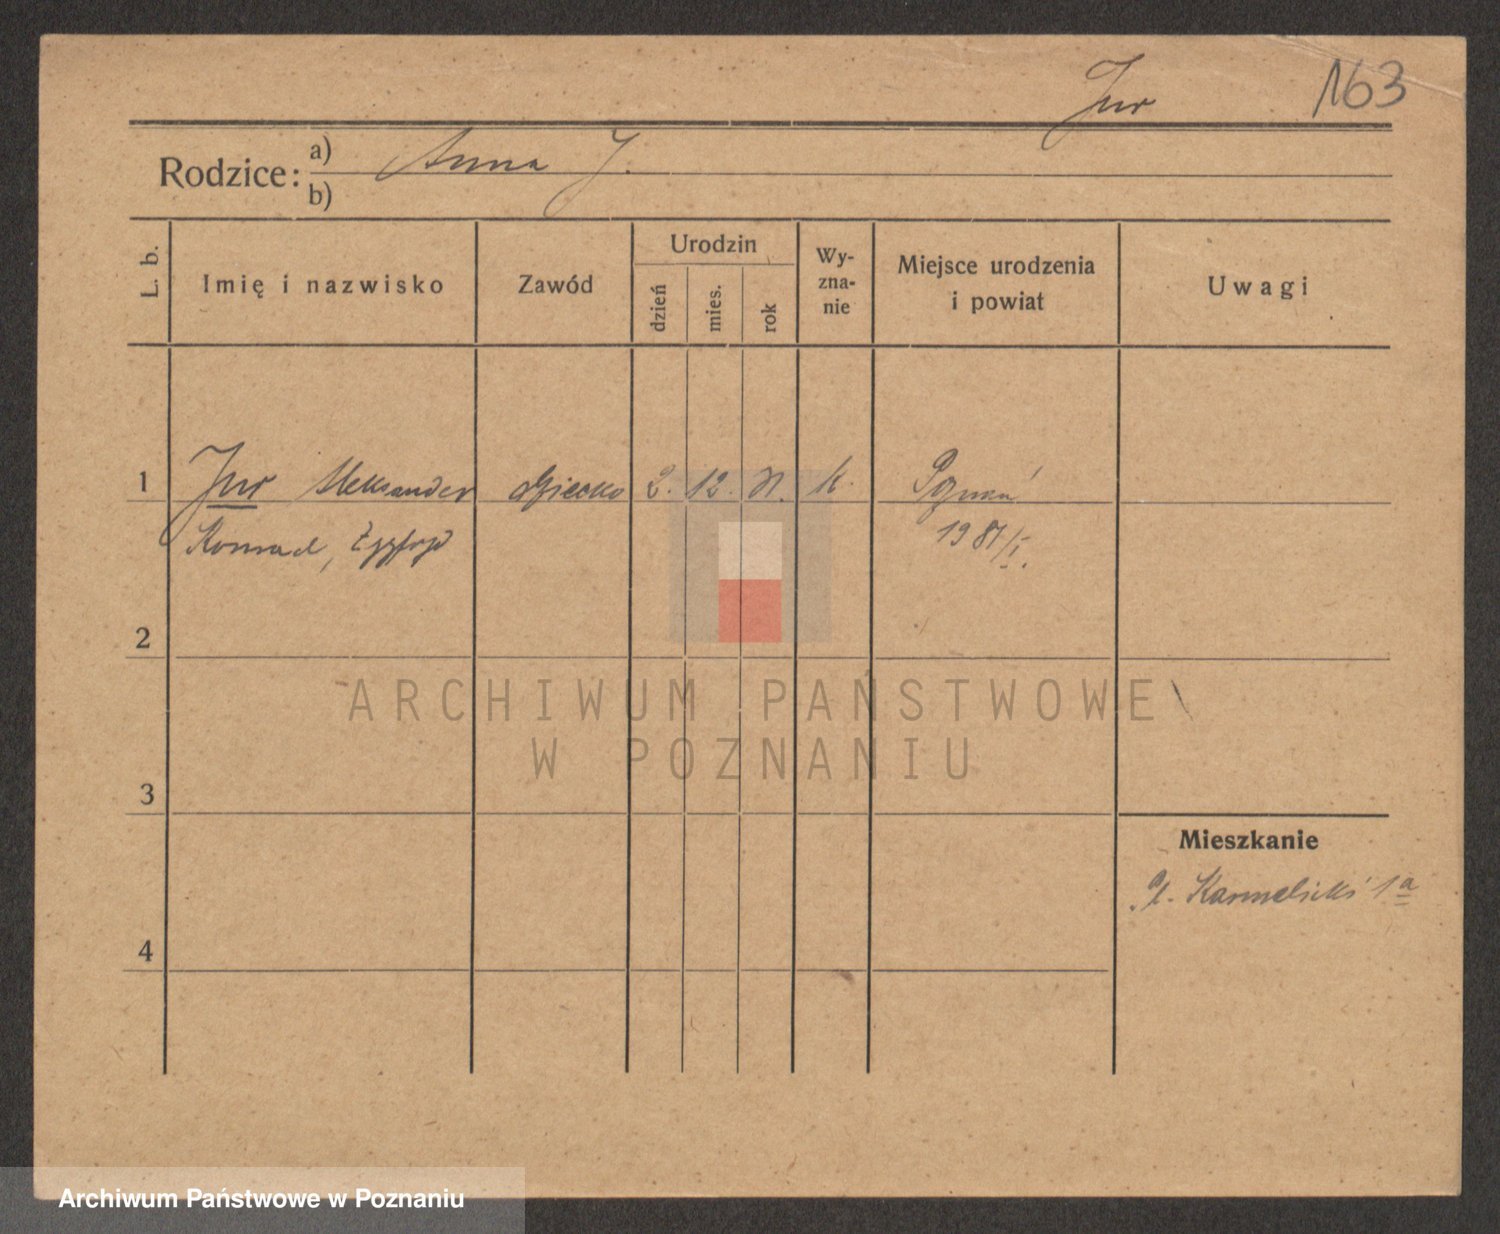 Jur 163
Rodzice: a) Anna J.
b)
L. b. Imię i nazwisko Zawód Urodzin dzień mies. rok Wy-zna-nie Miejsce urodzenia i powiat Uwagi
1 Jur Aleksander dziecko 2. 12. k. Poznań
Konrad, 198
2
ARCHIWUM PAŃSTWOWE
W POZNANIU
3
Mieszkanie
Pl. Karmelicki 1a
4
Archiwum Państwowe w Poznaniu